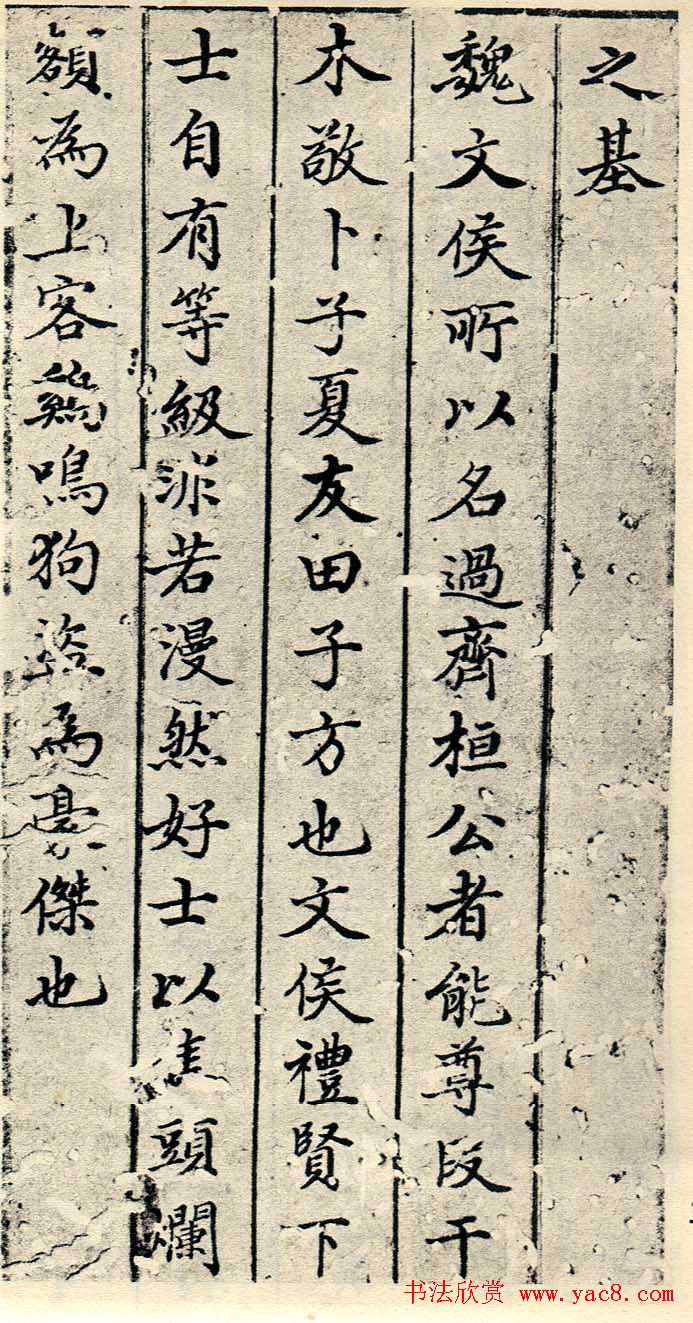 之基
魏文侯所以名過齊桓公者能尊段干
木敬卜子夏友田子方也文侯禮賢下
士自有等級非若漫然好士以焦頭爛
額為上客鷄鳴狗盜為豪傑也
书法欣赏 www.yac8.com